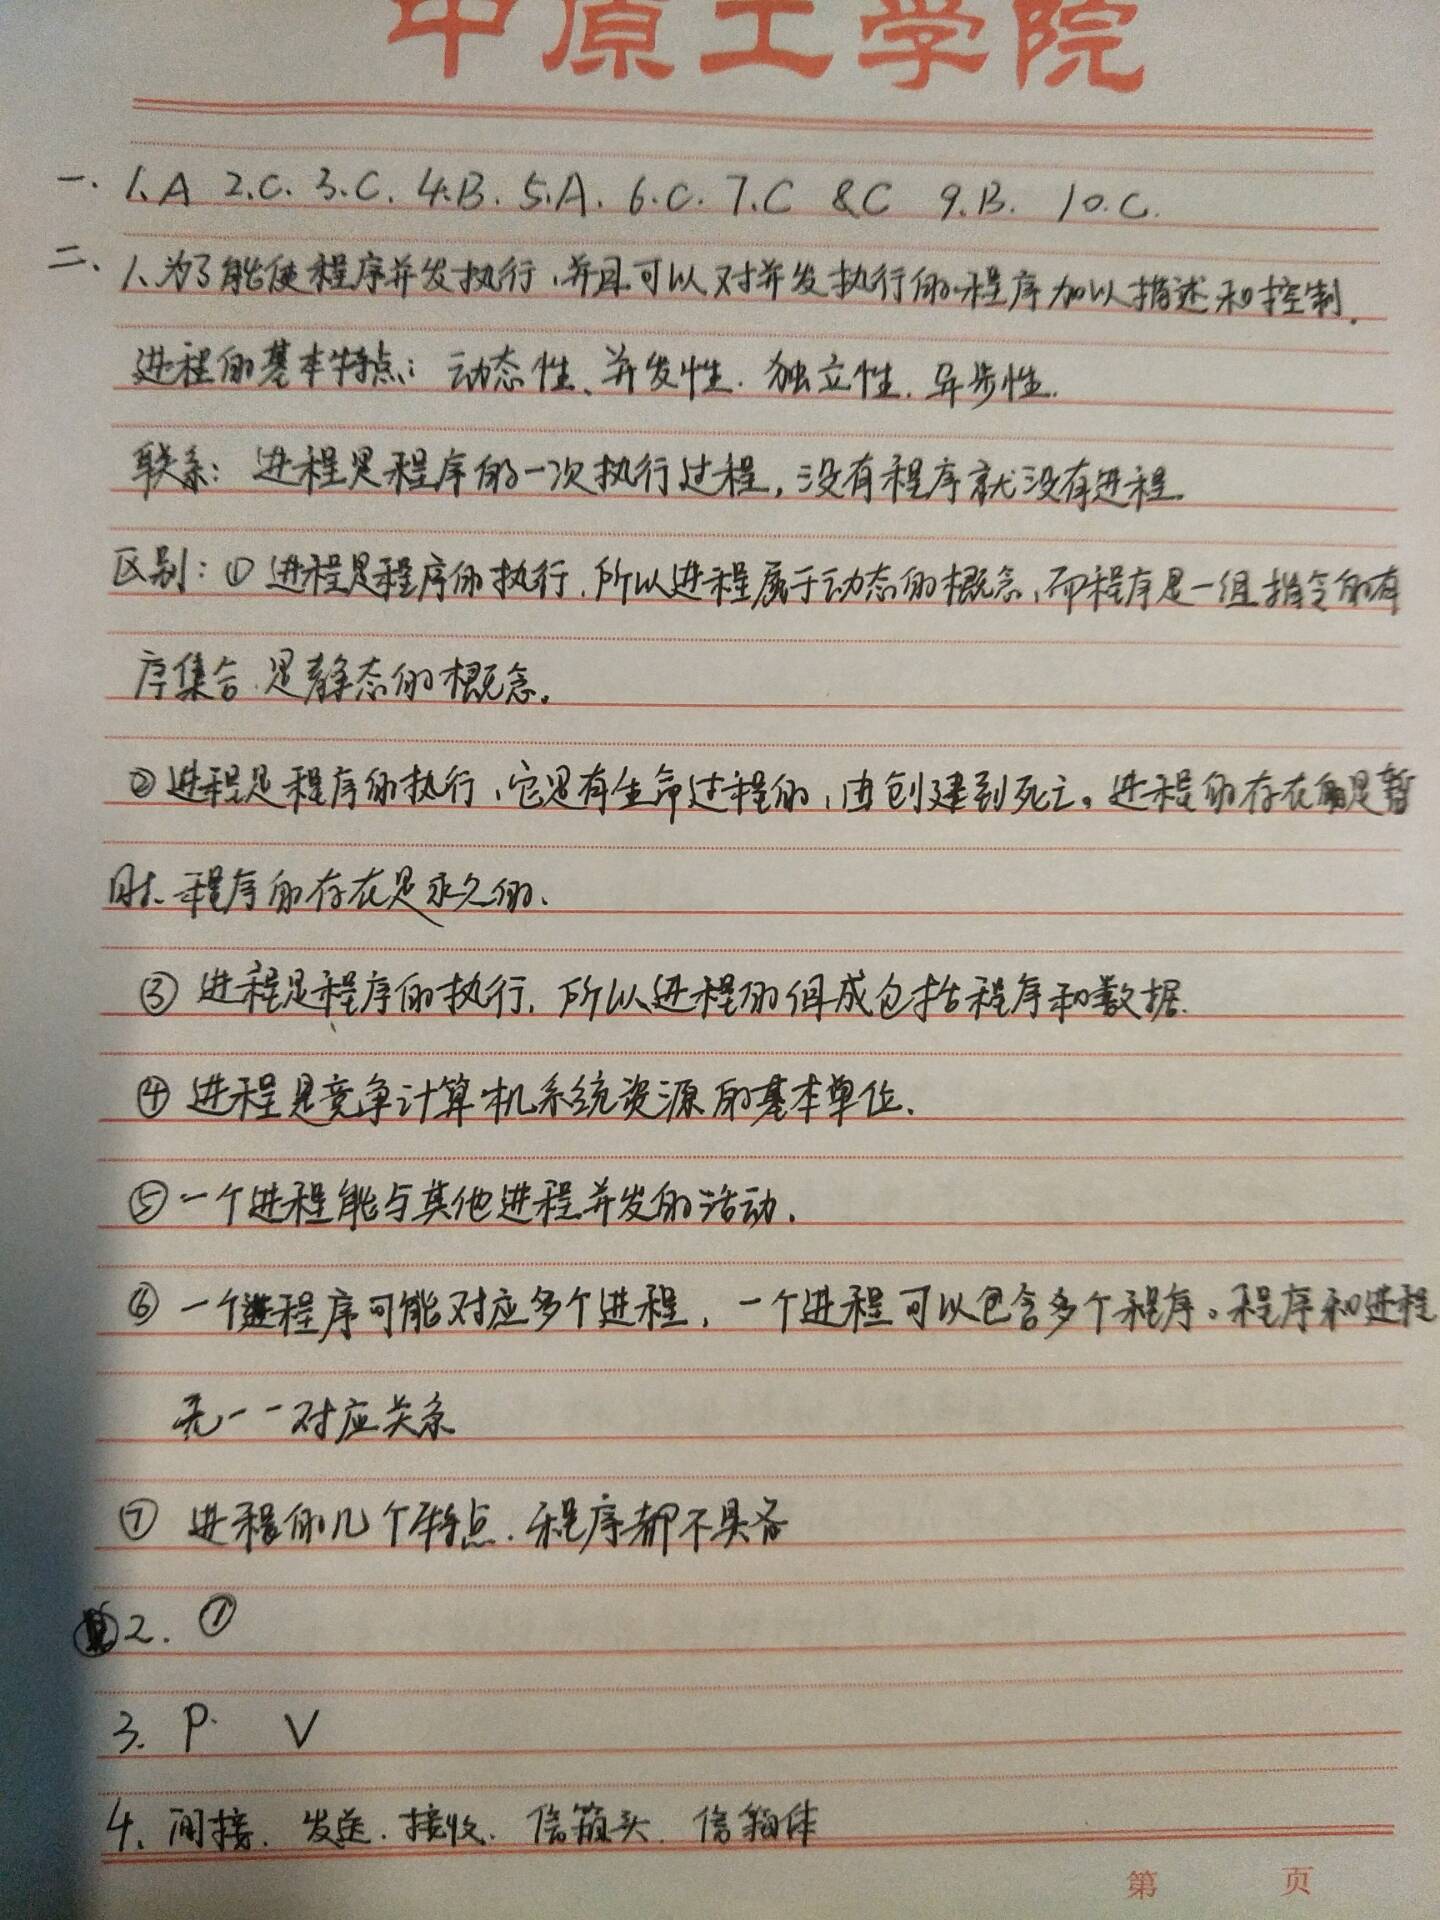 中原工学院
一、1.A 2.C. 3.C. 4.B. 5.A. 6.C. 7.C 8C 9.B. 10.C.
二、1、为了能使程序并发执行,并且可以对并发执行的程序加以描述和控制.
进程的基本特点: 动态性、并发性. 独立性. 异步性.
联系: 进程是程序的一次执行过程, 没有程序就没有进程.
区别: ① 进程是程序的执行, 所以进程属于动态的概念, 而程序是一组指令的有
序集合. 是静态的概念。
② 进程是程序的执行, 它是有生命过程的, 由创建到死亡。进程的存在是暂
时、程序的存在是永久的、
③ 进程是程序的执行, 所以进程的组成包括程序和数据.
④ 进程是竞争计算机系统资源的基本单位.
⑤ 一个进程能与其他进程并发的活动.
⑥ 一个程序可能对应多个进程, 一个进程可以包含多个程序。程序和进程
无一一对应关系
⑦ 进程的几个特点. 程序都不具备
2. ①
3. P. V
4、间接. 发送. 接收. 信箱头. 信箱体
第 页